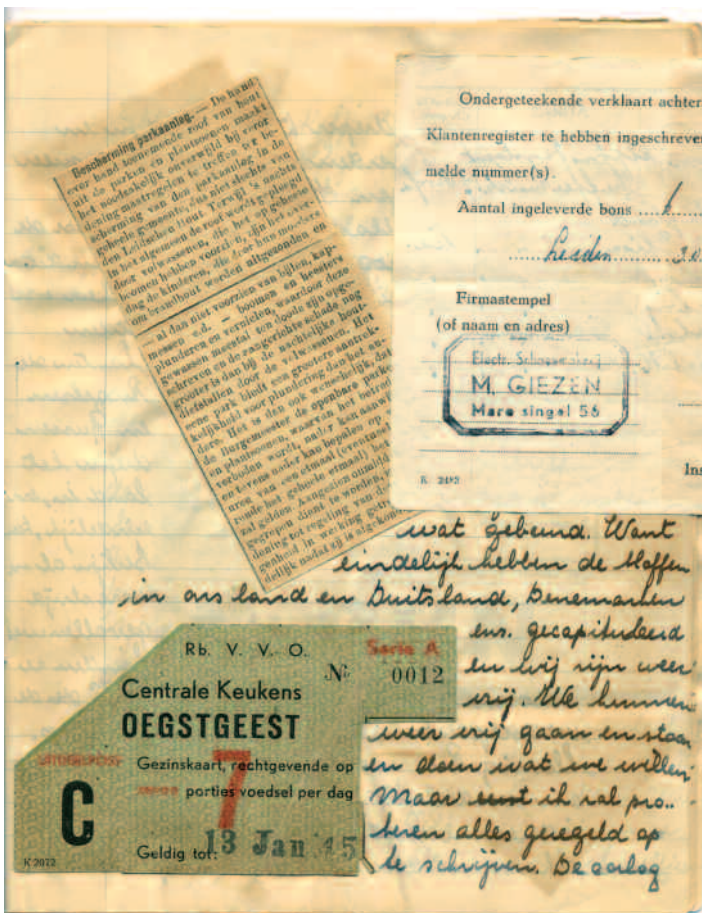 Bescherming parkaanleg. — De hand
over hand toenemende roof van hout
uit de parken en plantsoenen, maakt
het noodzakelijk onverwijld bij veror
dening maatregelen te treffen ter be-
scherming van den parkaanleg in de
geheele gemeente, dus niet slechts van
den Leidschen Hout. Terwijl 's nachts
in het algemeen de roof wordt gepleegd
door volwassenen, die het op geheele
boomen hebben voorzien, zijn het over-
dag de kinderen, die door hun moeders
om brandhout worden uitgezonden en
— al dan niet voorzien van bijlen, kap-
messen e.d. — boomen en heesters
plunderen en vernielen, waardoor deze
gewassen meestal ten doode zijn opge-
schreven en de aangerichte schade nog
grooter is dan bij de nachtelijke hout-
diefstallen door de volwassenen. Het
eene park biedt een grootere aantrek-
kelijkheid voor plundering dan het an-
dere. Het is dan ook wenschelijk, dat
de Burgemeester de openbare parken
en plantsoenen, waarvan het betreden
verboden wordt, nader kan aanwij
en tevens nader kan bepalen op
uren van een etmaal (eventueel
zal gelden. Aangezien onmidd
gegrepen dient te worden,
dening tot regeling van
in werking
delijk nadat zij is afgekon
Ondergeteekende verklaart achter
Klantenregister te hebben ingeschreven
melde nummer(s).
Aantal ingeleverde bons
Leiden
Firmastempel
(of naam en adres)
Electr. Schoenmakerij
M. GIEZEN
Mare singel 56
K 2492
Ins
wat gebeurd. Want
eindelijk hebben de Moffen
in ons land en Duitsland, Denemarken
ens. gecapituleerd
en wij zijn weer
vrij. We kunnen
weer vrij gaan en staan
en doen wat we willen
Maar eerst ik zal pro..
beren alles geregeld op
te schrijven. De oorlog
Rb. V. V. O.
Serie A
No 0012
Centrale Keukens
OEGSTGEEST
C
Gezinskaart, rechtgevende op
7
porties voedsel per dag
Geldig tot: 13 Jan '45
K 2072